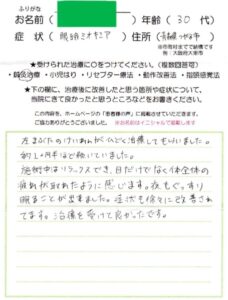 ふりがな
お名前( )年齢(30代)
症状(眼瞼ミオキニア)住所( )
※市町村までで結構です
例:大阪府大東市
★受けられた治療に○をつけてください。(複数回答可)
・鍼灸治療・小児はり・リセプター療法・動作改善法・指頭感覚法
★下の欄に、治療後に改善したと思う箇所や症状について、
当院にきて良かったと思うところなどをお書きください。
この内容を、ホームページの「患者様の声」に掲載させていただきます。
ご協力ありがとうございました。 ※お名前はイニシャルで掲載します
左まぶたのけいれんがひどく治療してもらいました。
約1ヶ月半ほど続いていました。
施術中はリラックスでき、目だけでなく体全体の
疲れが取れたように感じます。夜もぐっすり
眠ることが出来ました。症状も徐々に改善され
てます。治療を受けて良かったです。